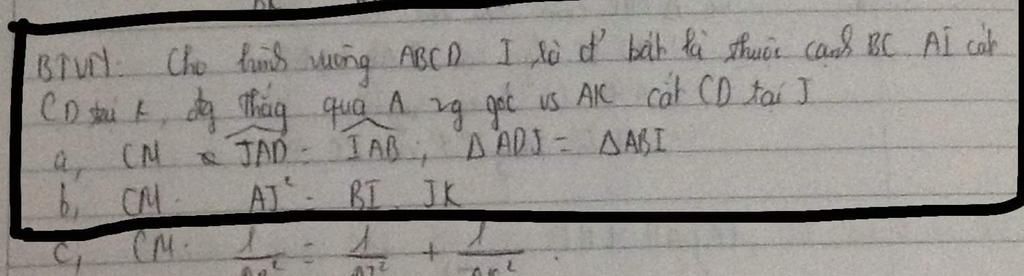 BTVN. Cho hình vuông ABCD I là đ' bất kì thuộc cạnh BC AI cắt
CD tại K, đg thẳng qua A vg góc vs AK cắt CD tại J
a, CM JAD = IAB, ΔADJ = ΔABI
b, CM. AJ² = BI. JK
c, CM. 1 = 1 + 1
AJ² AK²